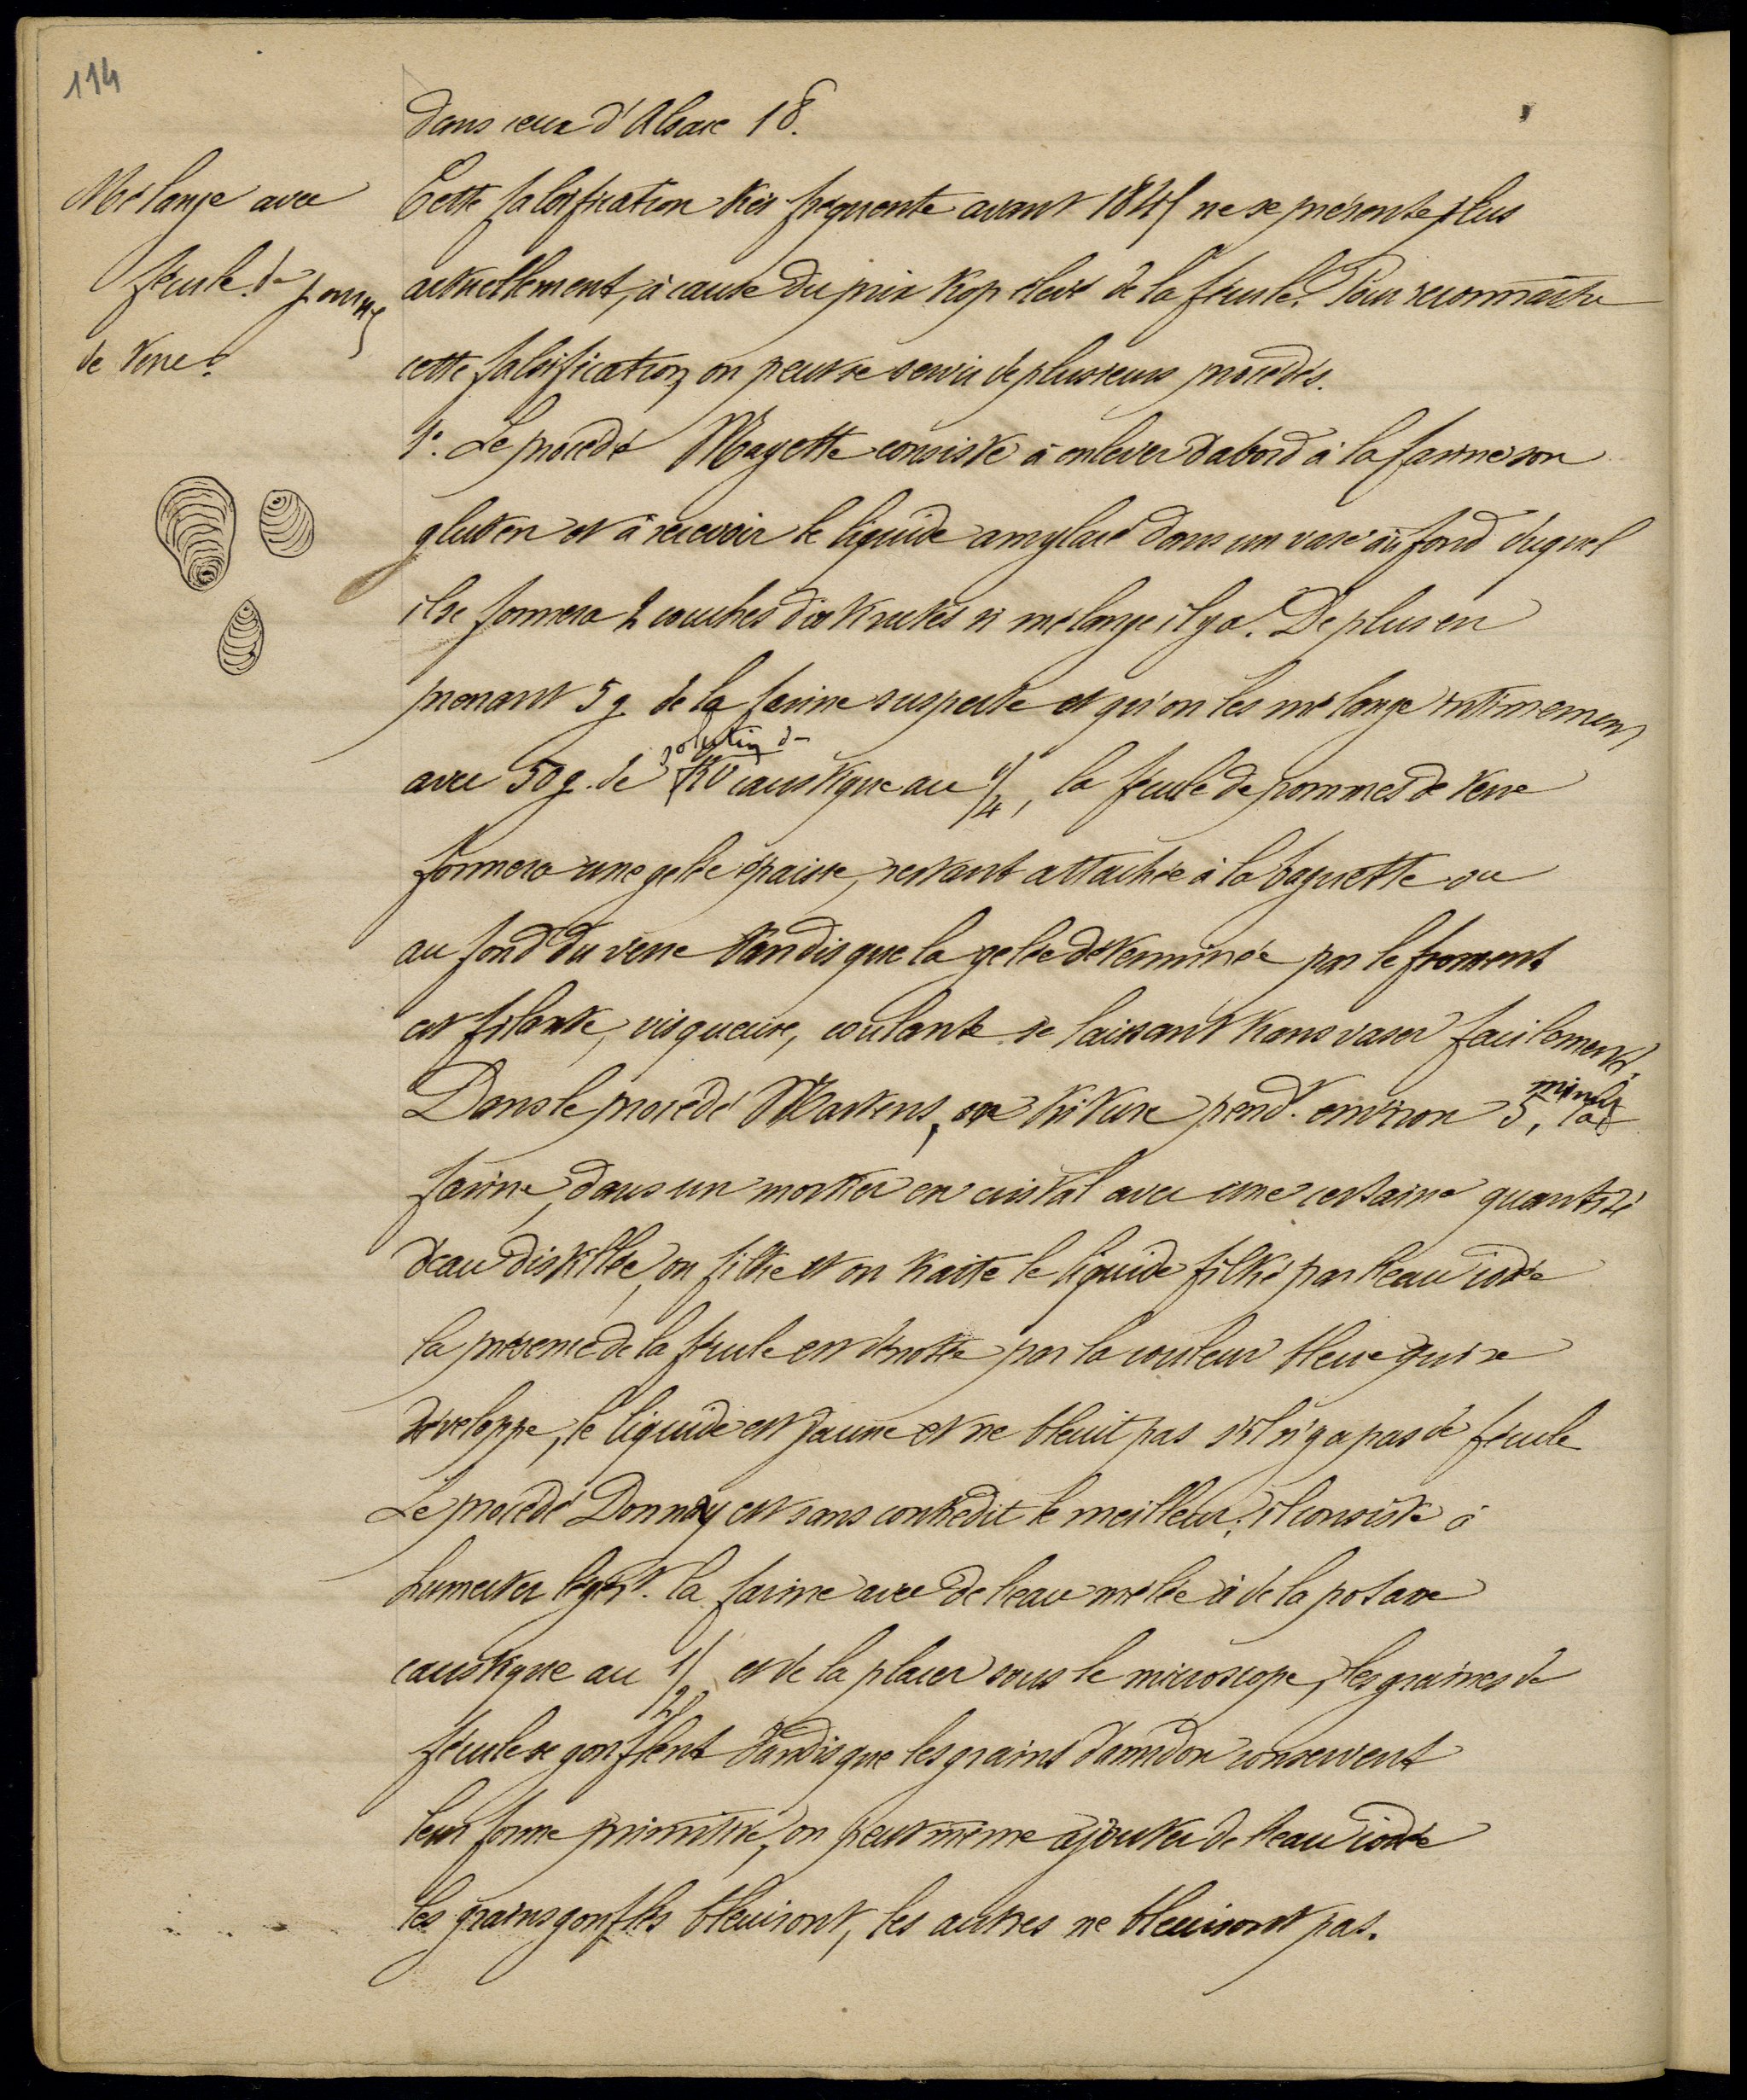 114
dans ceux d'Alsace 18.
Mélange avec
fécule de pomme
de terre.
Cette falsification très fréquente avant 1845 ne se présente plus
actuellement, à cause du prix trop élevé de la fécule. Pour reconnaître
cette falsification on peut se servir de plusieurs procédés.
1°. Le procédé Mayette consiste à enlever d'abord à la farine son
gluten et à recevoir le liquide amylacé dans un vase au fond duquel
il se formera 2 couches distinctes si mélange il y a. De plus en
prenant 5 g de la farine suspecte et qu'on les mélange intimement
solution de
avec 50 g. de KO caustique au 1/4, la fécule de pommes de terre
formera une gelée épaisse, restant attachée à la baguette ou
au fond du verre tandis que la gelée déterminée par le froment
est filante, visqueuse, coulante se laissant transvaser facilement.
Dans le procédé Martens, on triture pendt. environ 5 minutes, la
farine, dans un mortier en cristal avec une certaine quantité
d'eau distillée, on filtre et on traite le liquide filtré par l'eau iodée
la présence de la fécule est dénotée par la couleur bleue qui se
développe, le liquide est jaune et ne bleuit pas s'il n'y a pas de fécule
Le procédé Donnay est sans contredit le meilleur; il consiste à
humecter légèrt. la farine avec de l'eau mêlée à de la potasse
caustique au 1/2 et de la placer sous le microscope, les graines de
fécule se gonflent tandis que les grains d'amidon conservent
leur forme primitive, on peut même ajouter de l'eau iodée
les grains gonflés bleuiront, les autres ne bleuiront pas.